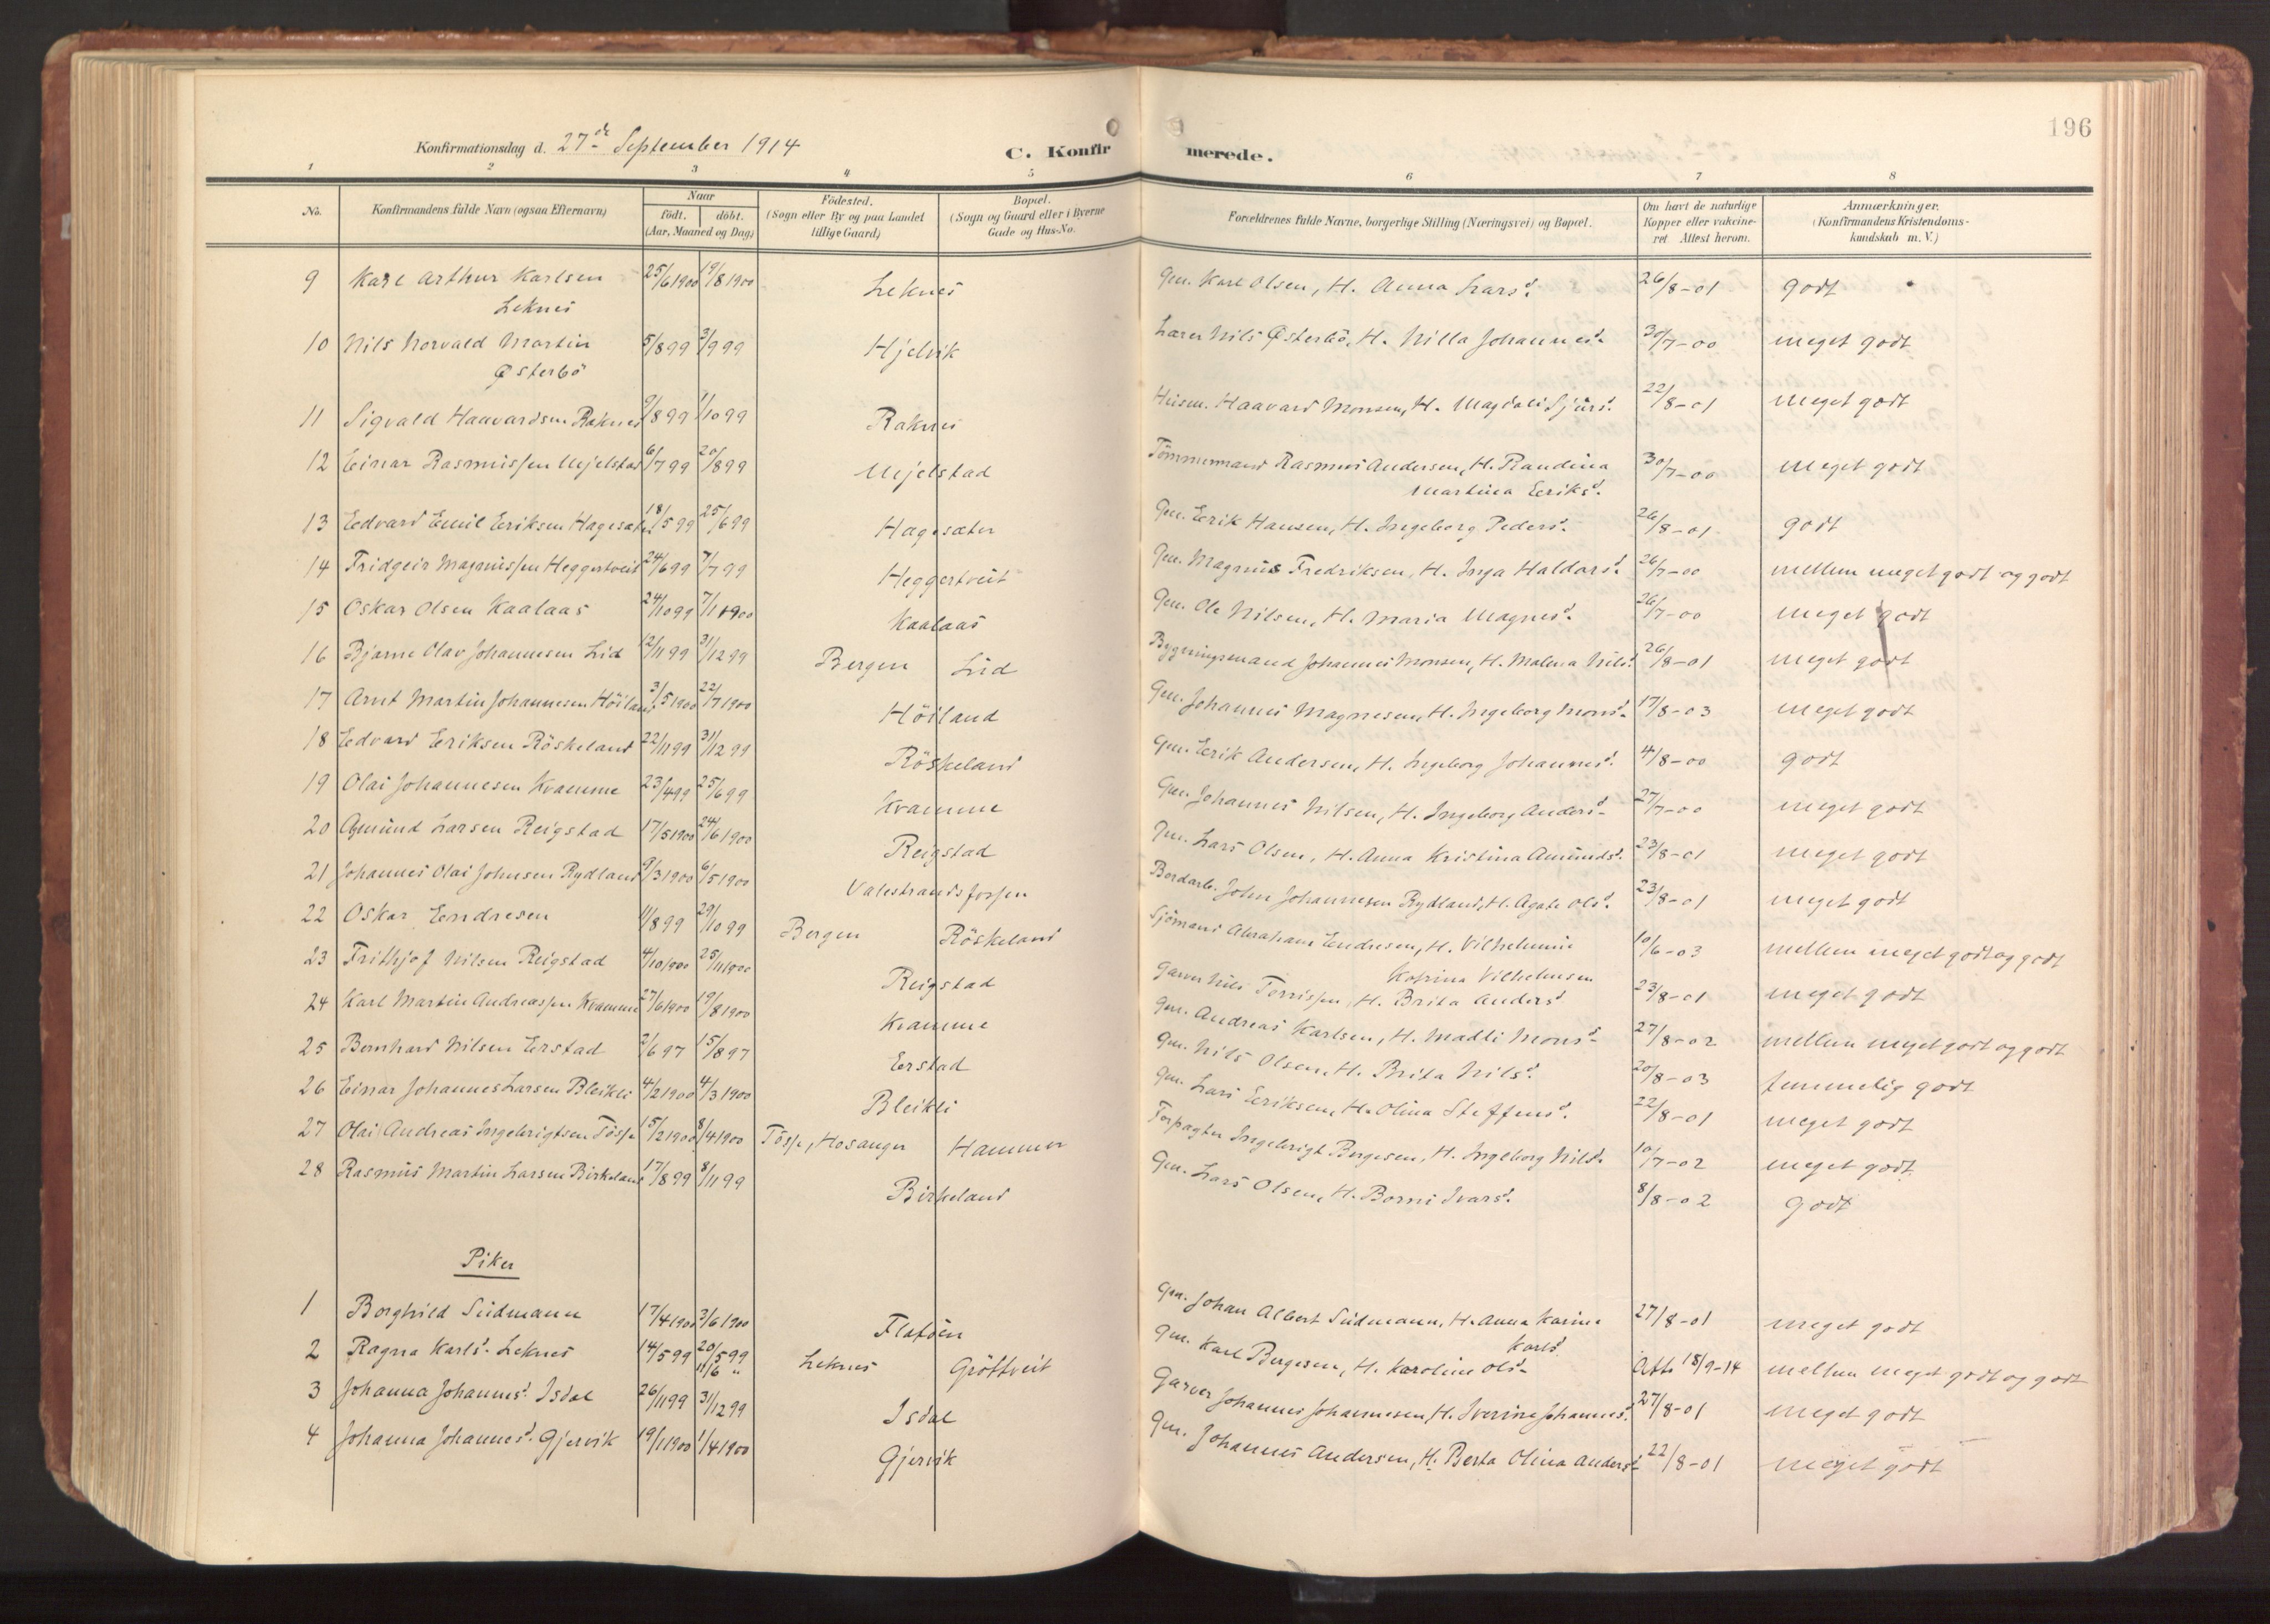 196
Konfirmationsdag d. 27de September 1914
C. Konfirmerede.
1 2 3 4 5 6 7 8
No. Konfirmandens fulde Navn (ogsaa Efternavn) Naar födt. döbt. (Aar, Maaned og Dag) Födested. (Sogn eller By og paa Landet tillige Gaard) Bopæl. (Sogn og Gaard eller i Byerne Gade og Hus-No. Forældrenes fulde Navne, borgerlige Stilling (Næringsvei) og Bopæl. Om havt de naturlige Kopper eller vakcineret Attest herom. Anmærkninger. (Konfirmandens Kristendomskundskab m. V.)
9 Karl Arthur Karlsen 25/6 1900 19/8 1900 Leknes Gm. Karl Olsen, H. Anna Larsd. 26/8-01 godt
Leknes
10 Nils Norvald Martin 5/8 99 3/9 99 Hjelvik Lærer Nils Østerbö, H. Nilla Johannesd. 30/7-00 meget godt
Østerbö
11 Sigvald Haavardsen Raknes 9/8 99 1/10 99 Raknes Husm. Haavard Monsen, H. Magdali Sjursd. 22/8-01 meget godt
12 Einar Rasmussen Mjelstad 6/7 99 20/8 99 Mjelstad Tömmermand Rasmus Andersen, H. Randina 30/7-00 meget godt
Martina Eriksd.
13 Edvard Emil Eriksen Hagesæter 18/5 99 25/6 99 Hagesæter Gm. Erik Hansen, H. Ingeborg Pedersd. 26/8-01 godt
14 Fridgeir Magnussen Heggertveit 24/6 99 7/7 99 Heggertveit Gm. Magnus Fredriksen, H. Inga Haldorsd. 26/7-00 mellem meget godt og godt
15 Oskar Olsen Kaalaas 24/10 99 7/1 1900 Kaalaas Gm. Ole Nilsen, H. Maria Magnesd. 26/7-00 meget godt
16 Bjarne Olav Johannesen Lid 12/11 99 31/12 99 Bergen Lid Bygningsmand Johannes Monsen, H. Malena Nilsd. 26/8-01 meget godt
17 Arnt Martin Johannesen Höiland 3/5 1900 22/7 1900 Höiland Gm. Johannes Magnesen, H. Ingeborg Monsd. 17/8-03 meget godt
18 Edvard Eriksen Röskeland 22/11 99 31/12 99 Röskeland Gm. Erik Andersen, H. Ingeborg Johannesd. 4/8-00 godt
19 Olai Johannesen Kvamme 23/4 99 25/6 99 Kvamme Gm. Johannes Nilsen, H. Ingeborg Andersd. 27/7-00 meget godt
20 Amund Larsen Reigstad 17/5 1900 24/6 1900 Reigstad Gm. Lars Olsen, H. Anna Kristina Amundsd. 23/8-01 meget godt
21 Johannes Olai Johnsen Rydland 9/3 1900 6/5 1900 Valestrandsfossen Bordarb. John Johannesen Rydland, H. Agate Olsd. 23/8-01 meget godt
22 Oskar Endresen 11/8 99 29/10 99 Bergen Röskeland Sjömand Abraham Endresen, H. Vilhelmine 10/6-03 mellem meget godt og godt
Katrina Vilhelmsen
23 Frithjof Nilsen Reigstad 4/10 1900 25/11 1900 Reigstad Garver Nils Terrissen, H. Brita Andersd. 23/8-01 meget godt
24 Karl Martin Andreassen Kvamme 27/6 1900 19/8 1900 Kvamme Gm. Andreas Karlsen, H. Madli Monsd. 27/8-02 mellem meget godt og godt
25 Bernhard Nilsen Erstad 2/6 97 15/8 97 Erstad Gm. Nils Olsen, H. Brita Nilsd. 20/8-03 temmelig godt
26 Einar Johannes Larsen Bleikli 4/2 1900 4/3 1900 Bleikli Gm. Lars Eriksen, H. Olina Steffensd. 22/8-01 meget godt
27 Olai Andreas Ingebrigtsen Tösse 15/2 1900 8/4 1900 Tösse, Hosanger Hammer Forpagter Ingebrigt Borgesen, H. Ingeborg Nilsd. 10/7-02 meget godt
28 Rasmus Martin Larsen Birkeland 17/8 99 8/11 99 Birkeland Gm. Lars Olsen, H. Borni Ivarsd. 8/8-02 godt
Piker
1 Borghild Südmann 17/4 1900 3/6 1900 Flatöen Gm. Johan Albert Südmann, H. Anna Karine 27/8-01 meget godt
Karlsd.
2 Ragna Karlsd. Leknes 14/5 99 20/5 99 Leknes Gröttveit Gm. Karl Borgesen, H. Karoline Olsd. Att. 18/9-14 mellem meget godt og godt
11/6 "
3 Johanna Johannesd. Isdal 26/11 99 31/12 99 Isdal Garver Johannes Johannesen, H. Iverine Johannesd. 27/8-01 meget godt
4 Johanna Johannesd. Gjervik 19/1 1900 1/4 1900 Gjervik Gm. Johannes Andersen, H. Berta Olina Andersd. 22/8-01 meget godt